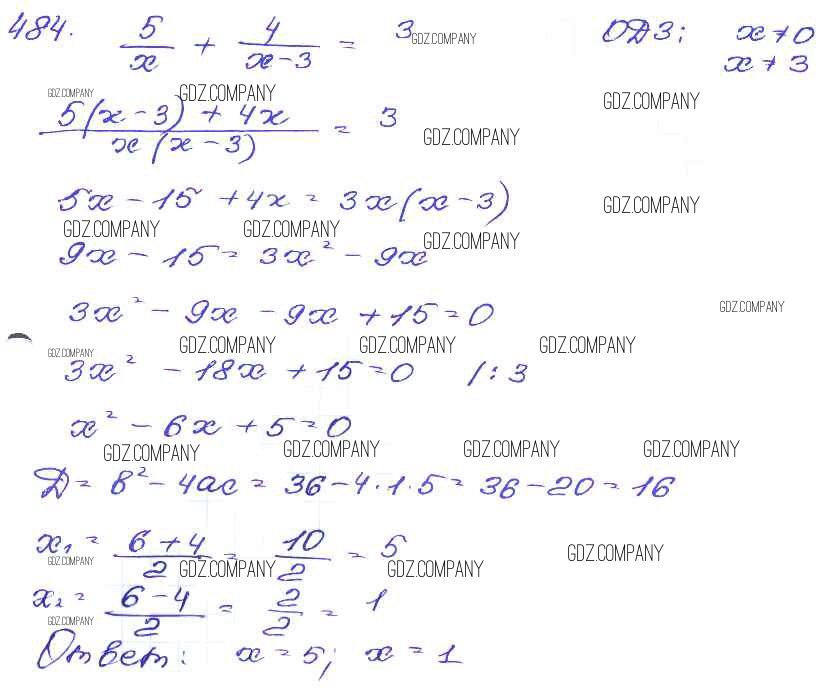 484. 5/x + 4/(x-3) = 3 GDZ.COMPANY ОДЗ: x ≠ 0
x ≠ 3
GDZ.COMPANY GDZ.COMPANY GDZ.COMPANY
(5(x-3) + 4x)/(x(x-3)) = 3 GDZ.COMPANY
5x - 15 + 4x = 3x(x-3) GDZ.COMPANY
GDZ.COMPANY GDZ.COMPANY GDZ.COMPANY
9x - 15 = 3x² - 9x
3x² - 9x - 9x + 15 = 0 GDZ.COMPANY
GDZ.COMPANY GDZ.COMPANY GDZ.COMPANY GDZ.COMPANY
3x² - 18x + 15 = 0 /:3
x² - 6x + 5 = 0
GDZ.COMPANY GDZ.COMPANY GDZ.COMPANY GDZ.COMPANY
Д = в² - 4ac = 36 - 4·1·5 = 36 - 20 = 16
x₁ = (6+4)/2 = 10/2 = 5 GDZ.COMPANY
GDZ.COMPANY GDZ.COMPANY GDZ.COMPANY
x₂ = (6-4)/2 = 2/2 = 1
GDZ.COMPANY
Ответ: x = 5; x = 1